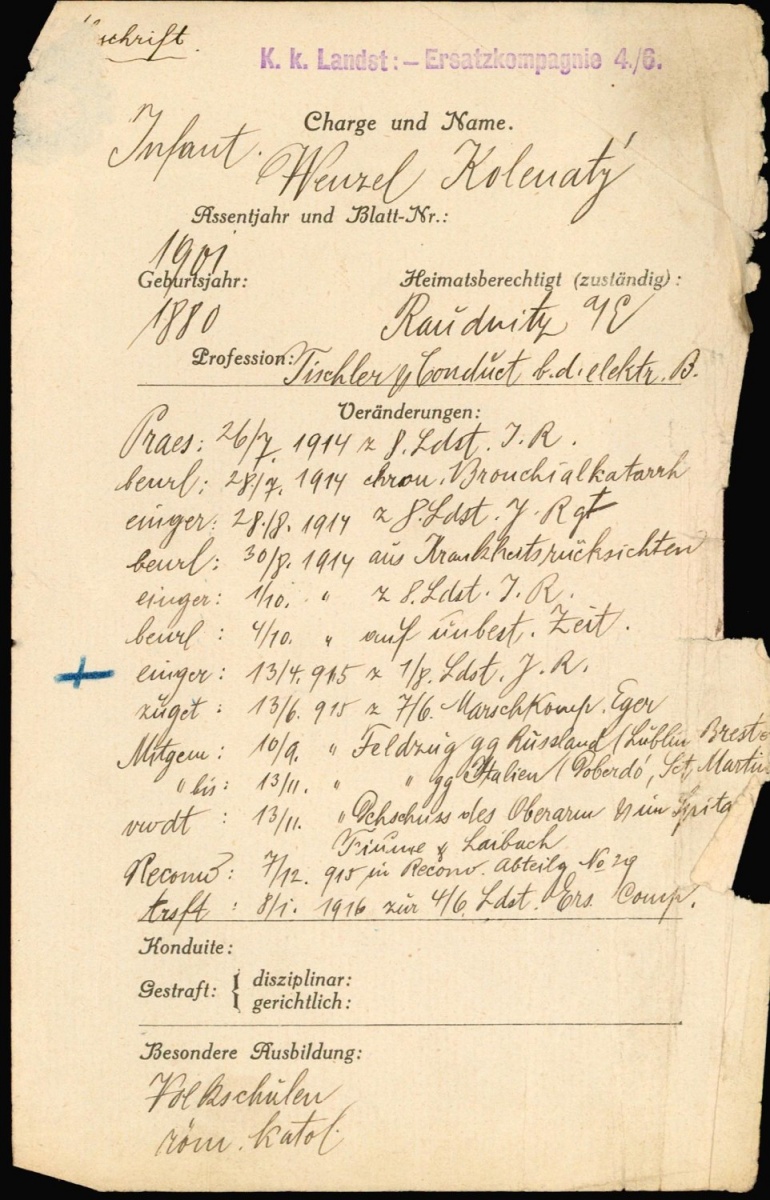 schrift.
K. k. Landst:- Ersatzkompagnie 4./6.
Charge und Name.
Infant. Wenzel Kolenatý
Assentjahr und Blatt-Nr.:
1901
Geburtsjahr: Heimatsberechtigt (zuständig):
1880 Raudnitz a/E
Profession: Tischler & Conduct b.d. elektr. B.
Veränderungen:
Praes: 26/7. 1914 z 8. Ldst. I. R.
beurl: 28/7. 1914 chron. Bronchialkatarrh
einger: 28./8. 1914 z 8. Ldst. J. Rgt
beurl: 30/8. 1914 aus Krankheitsrücksichten
einger: 1/10. " z 8. Ldst. I. R.
beurl: 4/10. " auf unbest. Zeit.
einger: 13/4. 915 z 1/8. Ldst. J. R.
zuget: 13/6. 915 z 7/6. Marschkomp. Eger
Mitgem: 10/9. " Feldzug gg Russland (Lublin Brest-
" bis: 13/11. " " gg Italien (Doberdó, Sct. Martin
vwdt: 13/11. " Dchschuss des Oberarm & im Spita
Fiume & Laibach
Reconv: 7/12. 915 in Reconv. Abteilg No 29
trsft: 8/1. 1916 zur 4/6 Ldst. Ers. Comp.
Konduite:
Gestraft: { disziplinar:
gerichtlich:
Besondere Ausbildung:
Volkschulen
röm. katol.